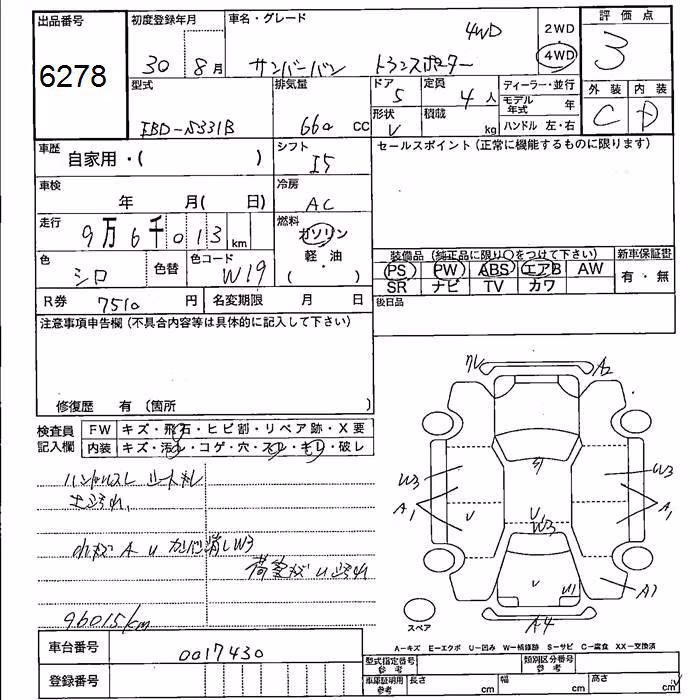 出品番号 6278
初度登録年月 30 8月
車名・グレード サンバーバン トランスポーター 4WD
2WD
4WD
評価点 3
外装 C 内装 D
型式 EBD-S331B
排気量 660 cc
ドア 5
形状 V
定員 4人
積載 kg
ディーラー・並行
モデル年式 年
ハンドル 左・右
車歴 自家用・( )
シフト I5
セールスポイント(正常に機能するものに限ります)
車検 年 月( 日)
冷房 AC
走行 9万6千013 km
燃料 ガソリン
軽・油
( )
色 シロ
色替
色コード W19
装備品(純正品に限り○をつけて下さい)
PS PW ABS エアB AW
SR ナビ TV カワ
新車保証書
有・無
R券 7510円
名変期限 月 日
後日品
注意事項申告欄(不具合内容等は具体的に記入して下さい)
修復歴 有(箇所 )
検査員記入欄
FW キズ・飛石・ヒビ割・リペア跡・X要
内装 キズ・汚レ・コゲ・穴・スレ・モレ・破レ
ハンドルスレ シートスレ
土汚れ、
小キズ A U カンバン消しW3
荷室キズ U 汚れ
96015km
A2
W3
A1
V
W3
A1
A1
A4
スペア
A−キズ E−エクボ U−凹み W−補修跡 S−サビ C−腐食 XX−交換済
車台番号 0017430
登録番号
型式指定番号 参考
類別区分番号 参考
車庫証明用 参考
長さ cm
幅 cm
高さ cm